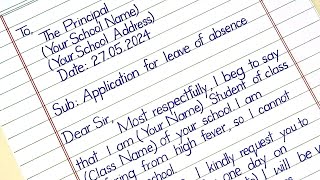 To,
The Principal
(Your School Name)
(Your School Address)
Date: 27.05.2024
Sub: Application for leave of absence
Dear Sir,
Most respectfully, I beg to say
that I am (Your Name) Student of class
(Class Name) of your school. I am
from high fever, so I cannot
school. I kindly request you to
one day on
I will be